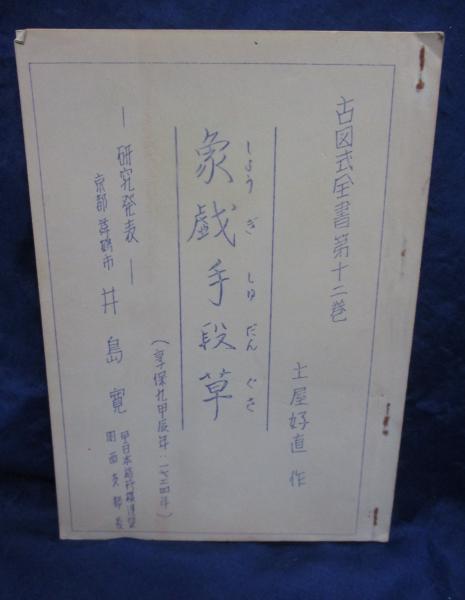 古図式全書第十二巻
土屋好直 作
しょう ぎ しゅ だん ぐさ
象戯手段草
(享保九甲辰年・一七二四年)
―研究発表―
京都 舞鶴市 井島 寛
関西支部長